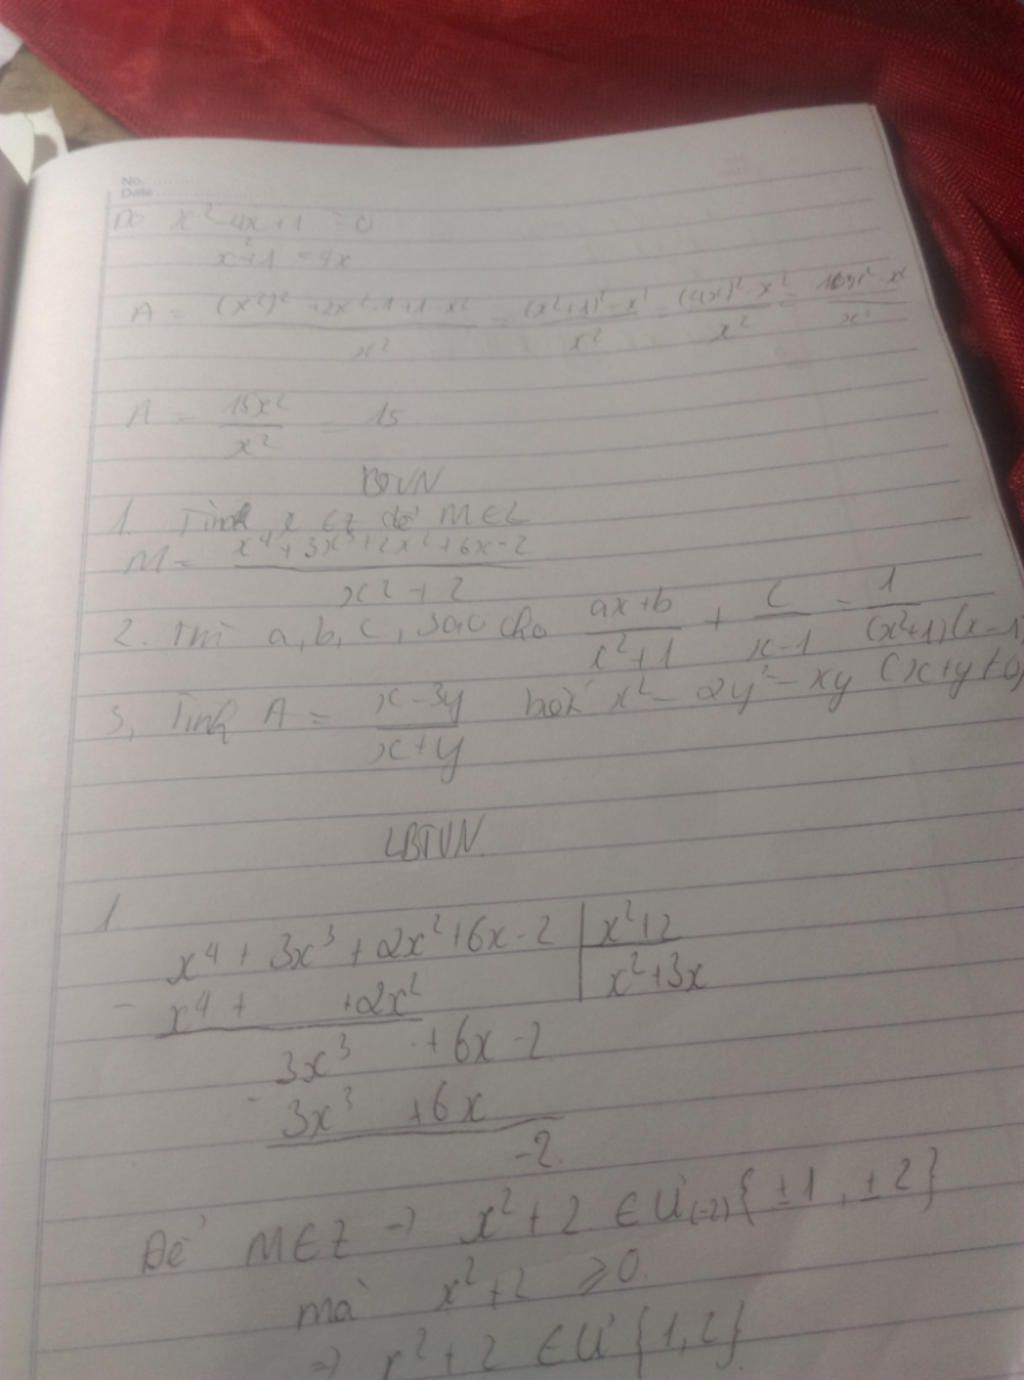 No.
Date
Do x² - 4x + 1 = 0
x² + 1 = 4x
A = (x²)² + 2x²·1 + 1 - x² / x² = (x²+1)² - x² / x² = (4x)² - x² / x² = 16x² - x² / x²
A = 15x² / x² = 15
BTVN
1. Tìm x ∈ Z để M ∈ Z
M = x⁴ + 3x³ + 2x² + 6x - 2 / x² + 2
2. Tìm a, b, c, sao cho ax+b / x²+1 + c / x-1 = 1 / (x²+1)(x-1)
3, Tính A = x - 3y / x + y biết x² - 2y² = xy (x+y ≠ 0,
LBTVN
1.
x⁴ + 3x³ + 2x² + 6x - 2 | x² + 2
- x⁴ + + 2x² | x² + 3x
3x³ + 6x - 2
- 3x³ + 6x
-2
Để M ∈ Z → x² + 2 ∈ Ư(-2) { ±1, ±2 }
mà x² + 2 ≥ 0
→ x² + 2 ∈ Ư { 1, 2 }